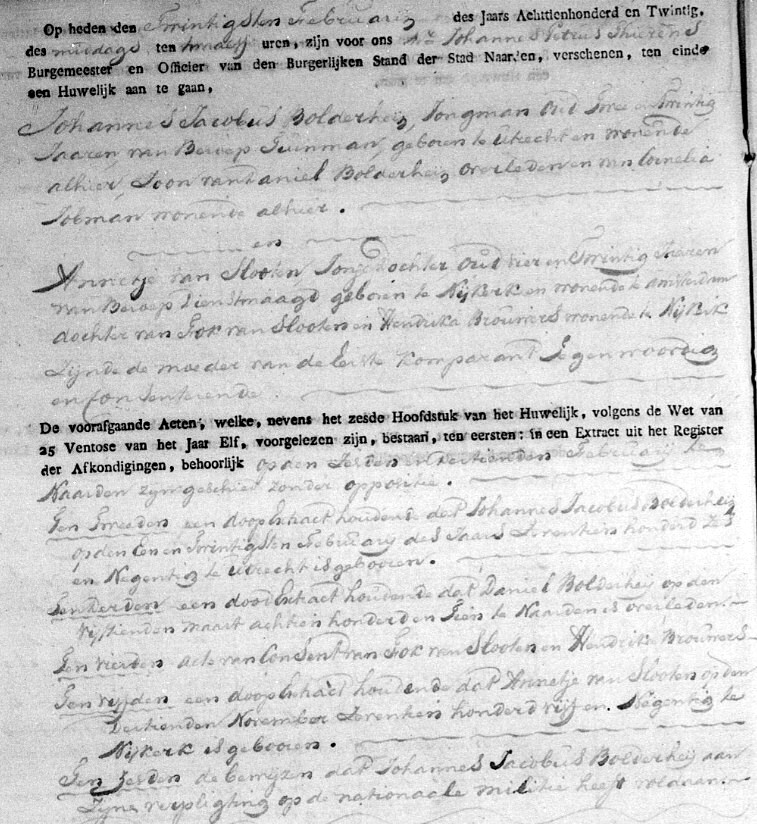 Op heden den Twintigsten February des Jaars Achttienhonderd en Twintig,
des middags ten twaalf uren, zijn voor ons Mr Johannes Petrus Thierens
Burgemeester en Officier van den Burgerlijken Stand der Stad Naarden, verschenen, ten einde
een Huwelijk aan te gaan,
Johannes Jacobus Bolderheij, Jongman Oud Twee en Twintig
Jaaren van Beroep Tuinman, geboren te Utrecht en wonende
alhier, Zoon van Daniel Bolderheij Overleden en van Cornelia
wonende alhier.
en
Annetje van Slooten Jonge dochter Oud vier en Twintig Jaaren
van Beroep dienstmaagd geboren te Nijkerk en wonende te Amsterdam
dochter van Gok van Slooten en Hendrika Brouwers wonende te Nijkerk
Zijnde de moeder van de Eerste Komparant Tegenwoordig
en Consenterende.
De voorafgaande Acten, welke, nevens het zesde Hoofdstuk van het Huwelijk, volgens de Wet van
25 Ventose van het Jaar Elf, voorgelezen zijn, bestaan, ten eersten: in een Extract uit het Register
der Afkondigingen, behoorlijk op den Zesden en dertienden February te
Naarden zijn geschied zonder oppositie.
Ten Tweeden een doop Extract houdende dat Johannes Jacobus Bolderheij
op den Een en Twintigsten February des Jaars Zeventien honderd Zes
en Negentig te Utrecht is gebooren.
Ten derden een dood Extract houdende dat Daniel Bolderheij op den
Vijftienden maart achtien honderd en Tien te Naarden is overleden.
Ten vierden acte van Consent van Gok van Slooten en Hendrika Brouwers
Ten vijfden een doop Extract houdende dat Annetje van Slooten op den
Dertienden November Zeventien honderd vijf en Negentig te
Nijkerk is gebooren.
Ten Zesden de bewijzen dat Johannes Jacobus Bolderheij aan
Zijne verpligting op de nationaale militie heeft voldaan.